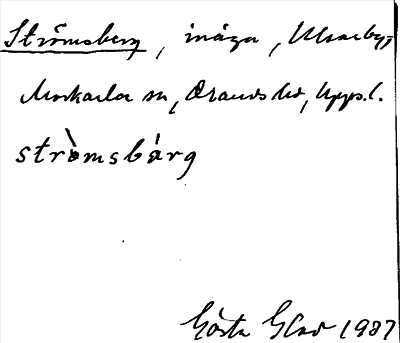 Strömsberg, inäga, Ullvarby,
Morkarla sn, Olands hd, Uppl.
strömsbärg
Gösta Glad 1987